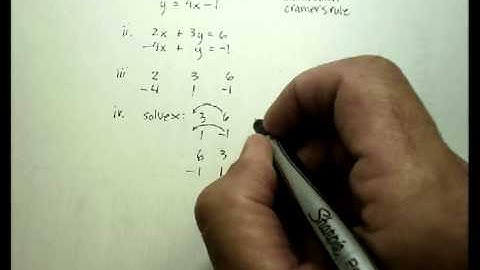 y = 4x - 1
cramer's rule
ii. 2x + 3y = 6
-4x + y = -1
iii 2 3 6
-4 1 -1
iv. solve x: 3 6
1 -1
6 3
-1 1
Sharpie